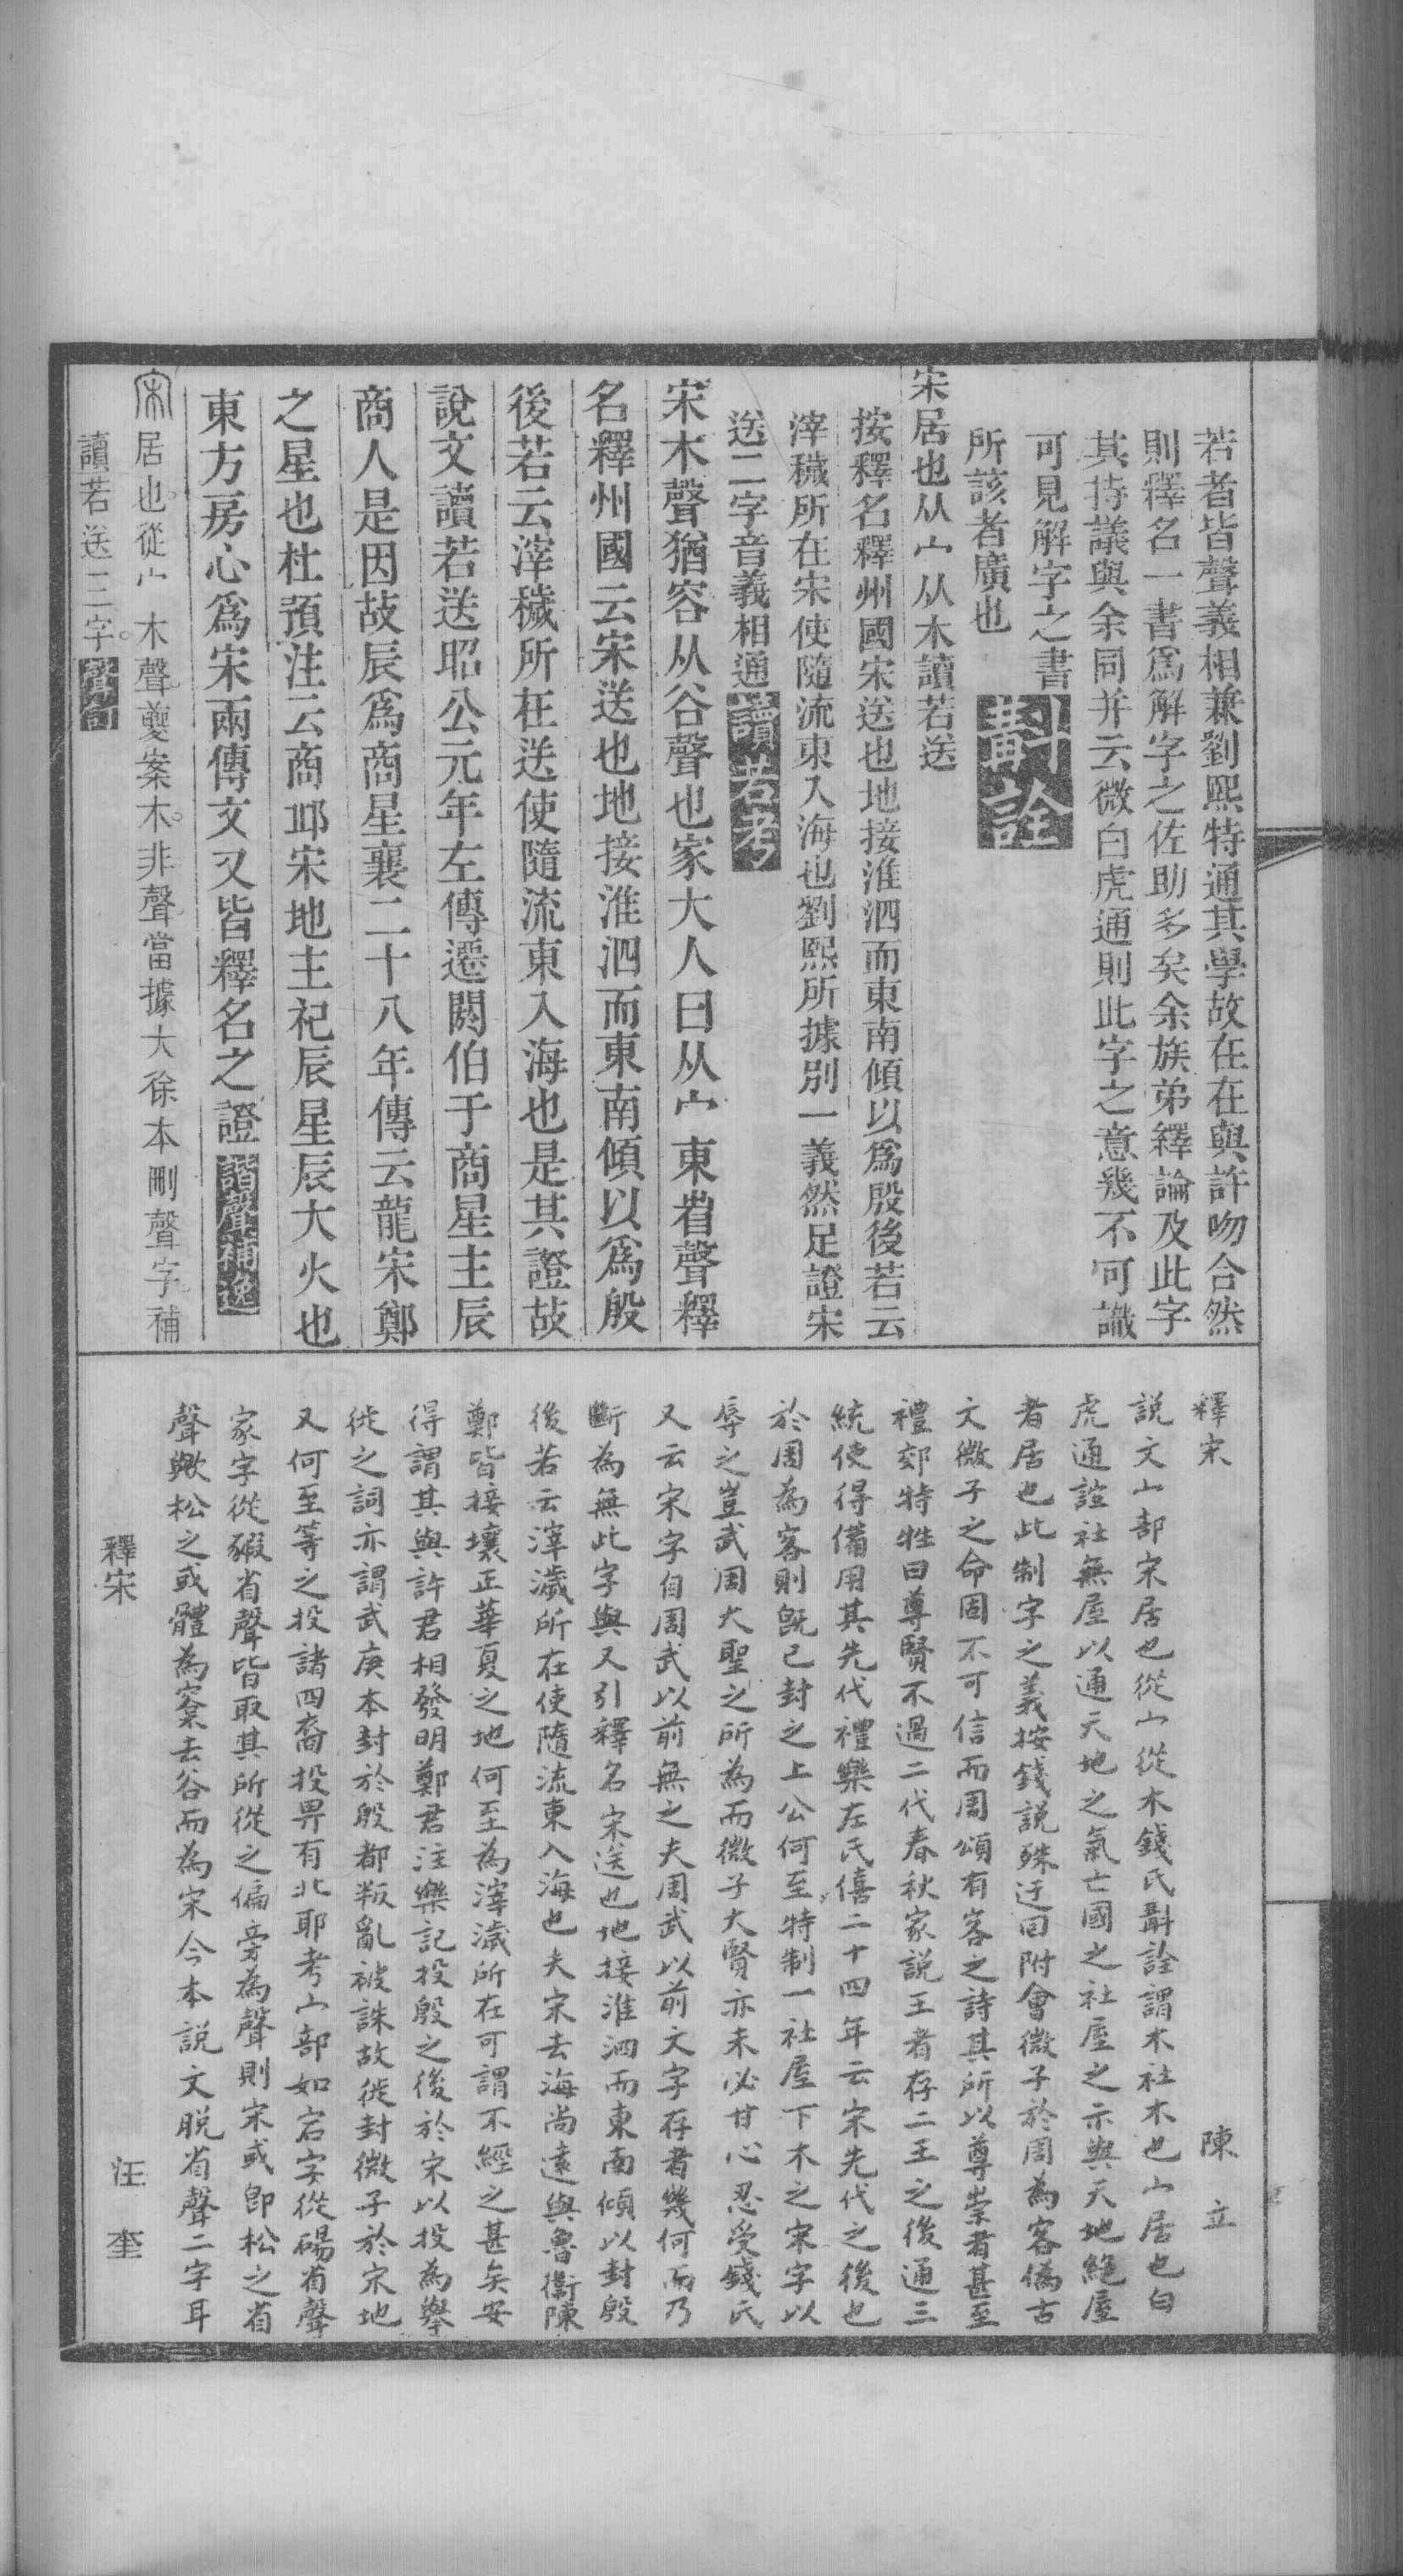 若者皆聲義相兼劉熙特通其學故在在與許吻合然
則釋名一書爲解字之佐助多矣余族弟繹論及此字
其持議與余同幷云微白虎通則此字之意幾不可識
可見解字之書
所該者廣也
斠詮
宋居也从宀从木讀若送
按釋名釋州國宋送也地接淮泗而東南傾以爲殷後若云
滓穢所在宋使隨流東入海也劉熙所據別一義然足證宋
送二字音義相通讀若考
宋木聲猶容从谷聲也家大人曰从宀東省聲釋
名釋州國云宋送也地接淮泗而東南傾以爲殷
後若云滓穢所在送使隨流東入海也是其證故
說文讀若送昭公元年左傳遷閼伯于商星主辰
商人是因故辰爲商星襄二十八年傳云龍宋鄭
之星也杜預注云商邱宋地主祀辰星辰大火也
東方房心爲宋兩傳文又皆釋名之證諧聲補逸
居也從宀木聲夔案木非聲當據大徐本刪聲字補
讀若送三字
釋宋 陳立
說文宀部宋居也從宀從木錢氏斠詮謂木社木也宀居也白
虎通誼社無屋以通天地之氣亡國之社屋之示與天地絕屋
者居也此制字之義按錢說殊迂回附會微子於周為客偽古
文微子之命固不可信而周頌有客之詩其所以尊崇者甚至
禮郊特牲曰尊賢不過二代春秋家說王者存二王之後通三
統使得備用其先代禮樂左氏僖二十四年云宋先代之後也
於周為客則既已封之上公何至特制一社屋下木之宋字以
辱之豈武周大聖之所為而微子大賢亦未必甘心忍受錢氏
又云宋字自周武以前無之夫周武以前文字存者幾何而乃
斷為無此字與又引釋名宋送也地接淮泗而東南傾以封殷
後若云滓濊所在使隨流東入海也夫宋去海尚遠與魯衞陳
鄭皆接壤正華夏之地何至為滓濊所在可謂不經之甚矣安
得謂其與許君相發明鄭君注樂記投殷之後於宋以投為舉
徙之詞亦謂武庚本封於殷都叛亂被誅故徙封微子於宋地
又何至等之投諸四裔投畀有北耶考宀部如宕字從碭省聲
家字從豭省聲皆取其所從之偏旁為聲則宋或即松之省
聲歟松之或體為㮤去谷而為宋今本說文脫省聲二字耳
釋宋 汪奎